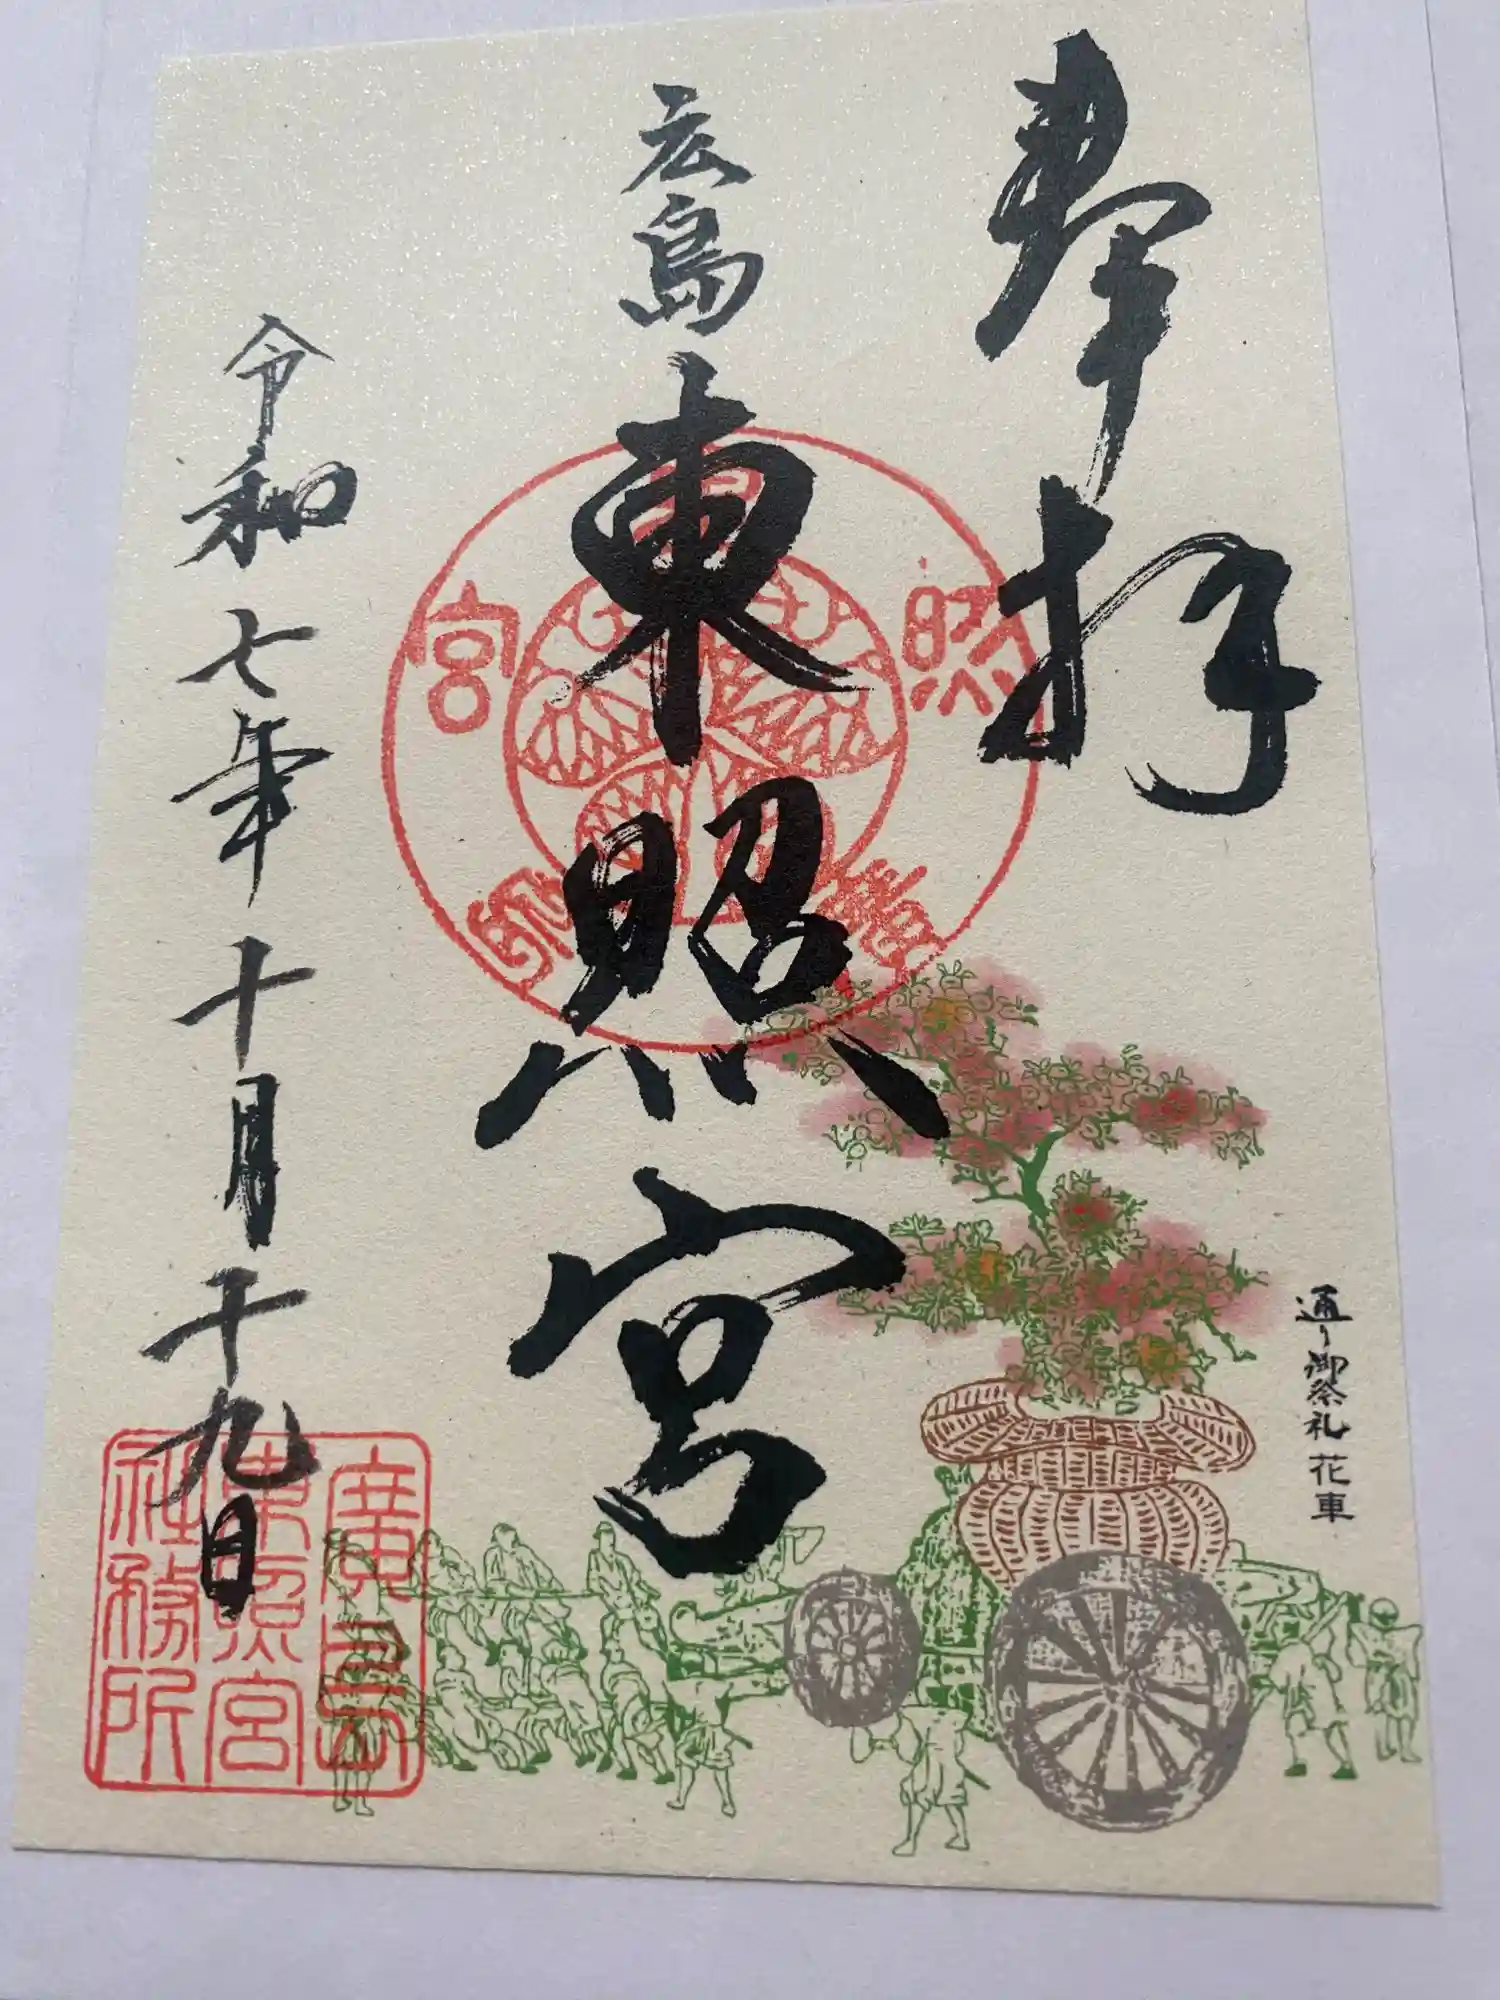 奉拝
広島
東照宮
令和七年十月十九日
通り御祭礼 花車
東
照
宮
廣島
東照宮
社務所